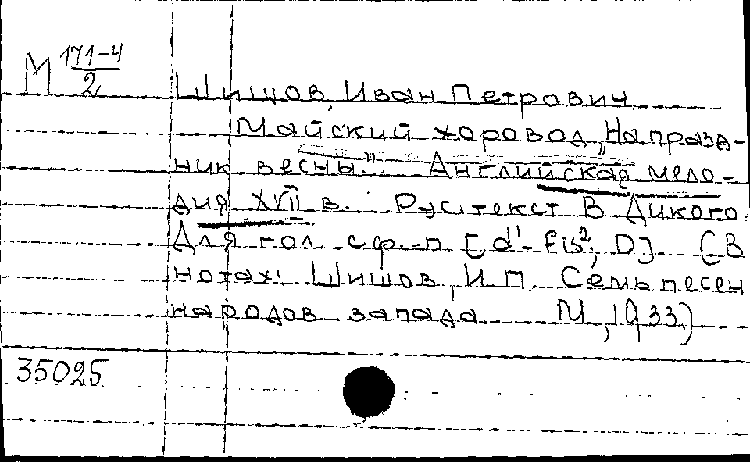 М 171-4/2
Шишов, Иван Петрович
Майский хоровод „На празд-
ник весны". Английская мело-
дия XVII в. Рус. текст В. Дикого.
Для гол. с ф.-п. [d¹-fis², D]. (В
нотах: Шишов, И.П. Семь песен
народов запада. М., 1933)
35025